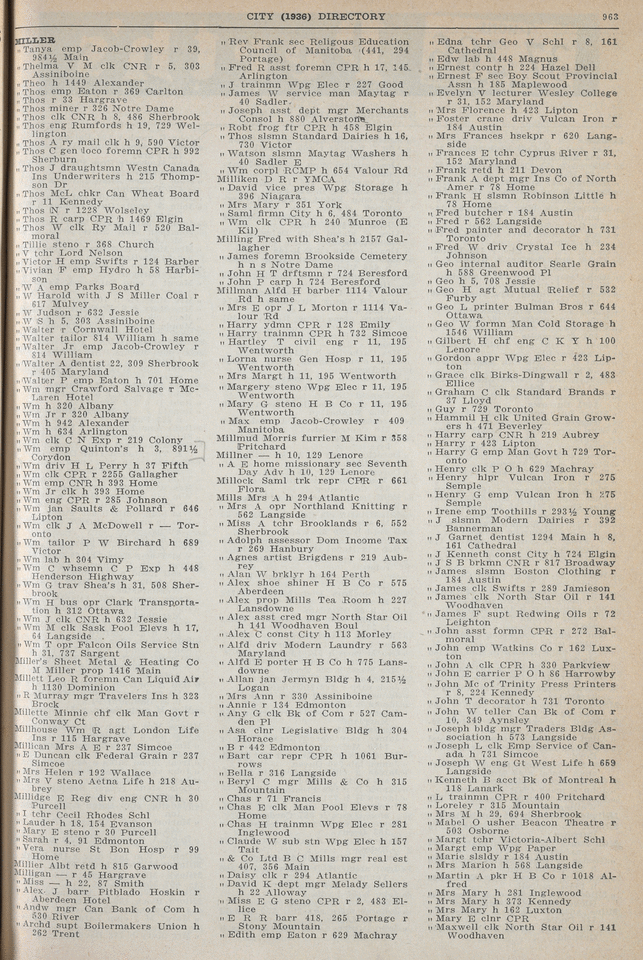 CITY (1936) DIRECTORY 963
MILLER
" Tanya emp Jacob-Crowley r 39,
984½ Main
" Thelma V M clk CNR r 5, 303
Assiniboine
" Theo h 1449 Alexander
" Thos emp Eaton r 369 Carlton
" Thos r 33 Hargrave
" Thos miner r 326 Notre Dame
" Thos clk CNR h 8, 486 Sherbrook
" Thos eng Rumfords h 19, 729 Wel-
lington
" Thos A ry mail clk h 9, 590 Victor
" Thos C gen loco foremn CPR h 992
Sherburn
" Thos J draughtsmn Westn Canada
Ins Underwriters h 215 Thomp-
son Dr
" Thos McL chkr Can Wheat Board
r 11 Kennedy
" Thos N r 1228 Wolseley
" Thos R carp CPR h 1469 Elgin
" Thos W clk Ry Mail r 520 Bal-
moral
" Tillie steno r 368 Church
" V tchr Lord Nelson
" Victor H emp Swifts r 124 Barber
" Vivian F emp Hydro h 58 Harbi-
son
" W A emp Parks Board
" W Harold with J S Miller Coal r
617 Mulvey
" W Judson r 632 Jessie
" W S h 5, 303 Assiniboine
" Walter r Cornwall Hotel
" Walter tailor 814 William h same
" Walter Jr emp Jacob-Crowley r
814 William
" Walter A dentist 22, 309 Sherbrook
r 405 Maryland
" Walter P emp Eaton h 701 Home
" Wm mgr Crawford Salvage r Mc-
Laren Hotel
" Wm h 320 Albany
" Wm Jr r 320 Albany
" Wm h 942 Alexander
" Wm h 634 Arlington
" Wm clk C N Exp r 219 Colony
" Wm emp Quinton's h 3, 891½
Corydon
" Wm driv H L Perry h 37 Fifth
" Wm clk CPR r 2255 Gallagher
" Wm emp CNR h 393 Home
" Wm Jr clk h 393 Home
" Wm eng CPR r 285 Johnson
" Wm jan Saults & Pollard r 646
Lipton
" Wm clk J A McDowell r — Tor-
onto
" Wm tailor P W Birchard h 689
Victor
" Wm lab h 304 Vimy
" Wm C whsemn C P Exp h 448
Henderson Highway
" Wm G trav Shea's h 31, 508 Sher-
brook
" Wm H bus opr Clark Transporta-
tion h 312 Ottawa
" Wm J clk CNR h 632 Jessie
" Wm M clk Sask Pool Elevs h 17,
64 Langside
" Wm T opr Falcon Oils Service Stn
h 31, 737 Sargent
Miller's Sheet Metal & Heating Co
M Miller prop 1416 Main
Millett Leo R foremn Can Liquid Air
h 1130 Dominion
" R Murray mgr Travelers Ins h 323
Brock
Millette Minnie chf clk Man Govt r
Conway Ct
Millhouse Wm R agt London Life
Ins r 115 Hargrave
Millican Mrs A E r 237 Simcoe
" E Duncan clk Federal Grain r 237
Simcoe
" Mrs Helen r 192 Wallace
" Mrs V steno Aetna Life h 218 Au-
brey
Millidge E Reg div eng CNR h 30
Purcell
" I tchr Cecil Rhodes Schl
" Lauder h 18, 154 Evanson
" Mary E steno r 30 Purcell
" Sarah r 4, 91 Edmonton
" Vera nurse St Bon Hosp r 99
Home
Millier Albt retd h 815 Garwood
Milligan — r 45 Hargrave
" Miss — h 22, 87 Smith
" Alex J barr Pitblado Hoskin r
Aberdeen Hotel
" Andw mgr Can Bank of Com h
530 River
" Archd supt Boilermakers Union h
262 Trent
" Rev Frank sec Religious Education
Council of Manitoba (441, 294
Portage)
" Fred R asst foremn CPR h 17, 145,
Arlington
" J trainmn Wpg Elec r 227 Good
" James W service man Maytag r
40 Sadler
" Joseph asst dept mgr Merchants
Consol h 880 Alverstone
" Robt frog ftr CPR h 458 Elgin
" Thos slsmn Standard Dairies h 16,
730 Victor
" Watson slsmn Maytag Washers h
40 Sadler E
" Wm corpl RCMP h 654 Valour Rd
Milliken D R r YMCA
" David vice pres Wpg Storage h
396 Niagara
" Mrs Mary r 351 York
" Saml firmn City h 6, 484 Toronto
" Wm clk CPR h 240 Munroe (E
Kil)
Milling Fred with Shea's h 2157 Gal-
lagher
" James foremn Brookside Cemetery
h n s Notre Dame
" John H T drftsmn r 724 Beresford
" John P carp h 724 Beresford
Millman Alfd H barber 1114 Valour
Rd h same
" Mrs E opr J L Morton r 1114 Va-
lour Rd
" Harry ydmn CPR r 128 Emily
" Harry trainmn CPR h 732 Simcoe
" Hartley T civil eng r 11, 195
Wentworth
" Lorna nurse Gen Hosp r 11, 195
Wentworth
" Mrs Margt h 11, 195 Wentworth
" Margery steno Wpg Elec r 11, 195
Wentworth
" Mary G steno H B Co r 11, 195
Wentworth
" Max emp Jacob-Crowley r 409
Manitoba
Millmud Morris furrier M Kim r 358
Pritchard
Millner — h 10, 129 Lenore
" A E home missionary sec Seventh
Day Adv h 10, 129 Lenore
Millock Saml trk repr CPR r 661
Flora
Mills Mrs A h 294 Atlantic
" Mrs A opr Northland Knitting r
562 Langside
" Miss A tchr Brooklands r 6, 552
Sherbrook
" Adolph assessor Dom Income Tax
r 269 Hanbury
" Agnes artist Brigdens r 219 Aub-
rey
" Alan W brklyr h 164 Perth
" Alex shoe shiner H B Co r 575
Aberdeen
" Alex prop Mills Tea Room r 227
Lansdowne
" Alex asst cred mgr North Star Oil
h 141 Woodhaven Boul
" Alex C const City h 113 Morley
" Alfd driv Modern Laundry r 563
Maryland
" Alfd E porter H B Co r 775 Lans-
downe
" Allan jan Jermyn Bldg h 4, 215½
Logan
" Mrs Ann r 330 Assiniboine
" Annie r 134 Edmonton
" Any G clk Bk of Com r 527 Cam-
den Pl
" Asa clnr Legislative Bldg h 304
Horace
" B r 442 Edmonton
" Bart car repr CPR h 1061 Bur-
rows
" Bella r 316 Langside
" Beryl C mgr Mills & Co h 315
Mountain
" Chas r 71 Francis
" Chas E clk Man Pool Elevs r 78
Home
" Chas H trainmn Wpg Elec r 281
Inglewood
" Claude W sub stn Wpg Elec h 157
Tait
" & Co Ltd B C Mills mgr real est
407, 356 Main
" Daisy clk r 294 Atlantic
" David K dept mgr Melady Sellers
h 22 Alloway
" Miss E G steno CPR r 2, 483 El-
lice
" E R R barr 418, 265 Portage r
Stony Mountain
" Edith emp Eaton r 629 Machray
" Edna tchr Geo V Schl r 8, 161
Cathedral
" Edw lab h 448 Magnus
" Ernest contr h 224 Hazel Dell
" Ernest F sec Boy Scout Provincial
Assn h 185 Maplewood
" Evelyn V lecturer Wesley College
r 31, 152 Maryland
" Mrs Florence h 423 Lipton
" Foster crane driv Vulcan Iron r
184 Austin
" Mrs Frances hsekpr r 620 Lang-
side
" Frances E tchr Cyprus River r 31,
152 Maryland
" Frank retd h 211 Devon
" Frank A dept mgr Ins Co of North
Amer r 78 Home
" Frank H slsmn Robinson Little h
78 Home
" Fred butcher r 184 Austin
" Fred r 562 Langside
" Fred painter and decorator h 731
Toronto
" Fred W driv Crystal Ice h 234
Johnson
" Geo internal auditor Searle Grain
h 588 Greenwood Pl
" Geo h 5, 708 Jessie
" Geo H agt Mutual Relief r 532
Furby
" Geo L printer Bulman Bros r 644
Ottawa
" Geo W formn Man Cold Storage h
1546 William
" Gilbert H chf eng C K Y h 100
Lenore
" Gordon appr Wpg Elec r 423 Lip-
ton
" Grace clk Birks-Dingwall r 2, 483
Ellice
" Graham C clk Standard Brands r
37 Lloyd
" Guy r 729 Toronto
" Hammil H clk United Grain Grow-
ers h 471 Beverley
" Harry carp CNR h 219 Aubrey
" Harry r 423 Lipton
" Harry G emp Man Govt h 729 Tor-
onto
" Henry clk P O h 629 Machray
" Henry hlpr Vulcan Iron r 275
Semple
" Henry G emp Vulcan Iron h 275
Semple
" Irene emp Toothills r 293½ Young
" J slsmn Modern Dairies r 392
Bannerman
" J Garnet dentist 1294 Main h 8,
161 Cathedral
" J Kenneth const City h 724 Elgin
" J S B brkmn CNR r 817 Broadway
" James slsmn Boston Clothing r
184 Austin
" James clk Swifts r 289 Jamieson
" James clk North Star Oil r 141
Woodhaven
" James F supt Redwing Oils r 72
Leighton
" John asst formn CPR r 272 Bal-
moral
" John emp Watkins Co r 162 Lux-
ton
" John A clk CPR h 330 Parkview
" John E carrier P O h 86 Harrowby
" John Mc of Trinity Press Printers
r 8, 224 Kennedy
" John T decorator h 731 Toronto
" John W teller Can Bk of Com r
10, 349 Aynsley
" Joseph bldg mgr Traders Bldg As-
sociation h 573 Langside
" Joseph L clk Emp Service of Can-
ada h 731 Simcoe
" Joseph W eng Gt West Life h 659
Langside
" Kenneth B acct Bk of Montreal h
118 Lanark
" L trainmn CPR r 400 Pritchard
" Loreley r 315 Mountain
" Mrs M h 29, 694 Sherbrook
" Mabel O usher Beacon Theatre r
503 Osborne
" Margt tchr Victoria-Albert Schl
" Margt emp Wpg Paper
" Marie slsldy r 184 Austin
" Mrs Marion h 568 Langside
" Martin A pkr H B Co r 1018 Al-
fred
" Mrs Mary h 281 Inglewood
" Mrs Mary h 373 Kennedy
" Mrs Mary h 162 Luxton
" Mary E clnr CPR
" Maxwell clk North Star Oil r 141
Woodhaven